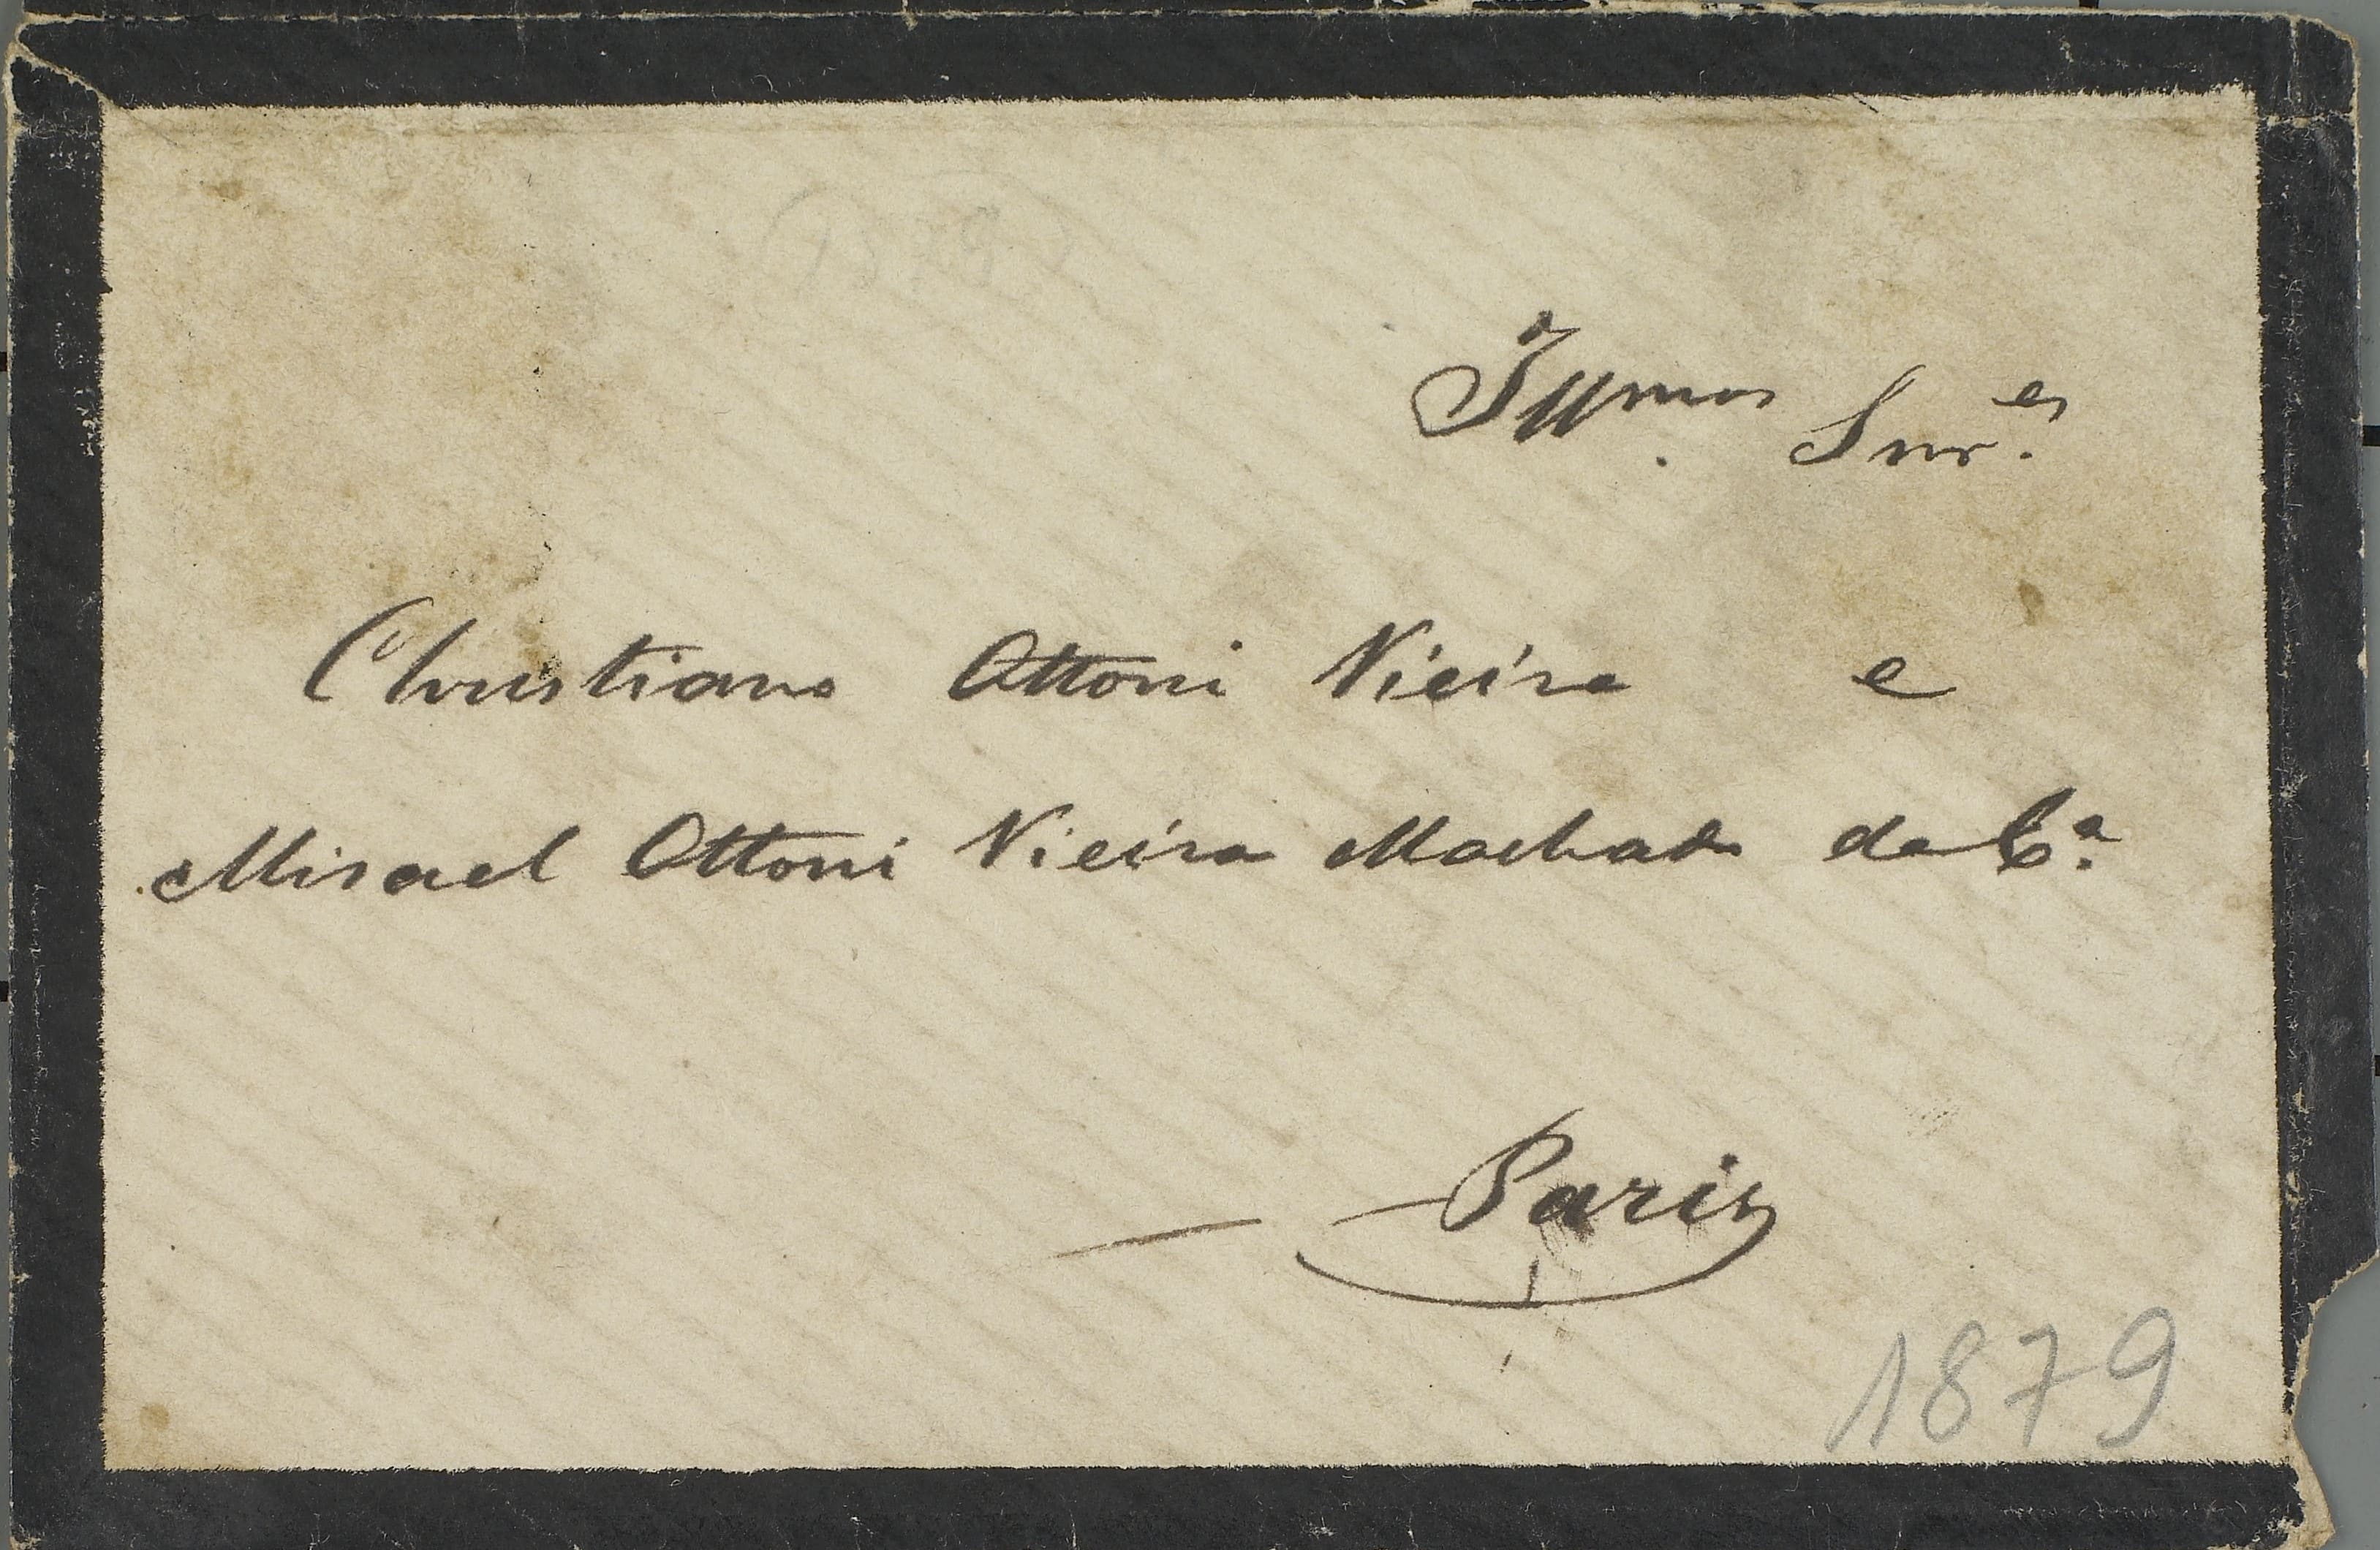 Illmos Snr.es
Christiano Ottoni Vieira e
Misael Ottoni Vieira Machado da C.a
Paris
1879